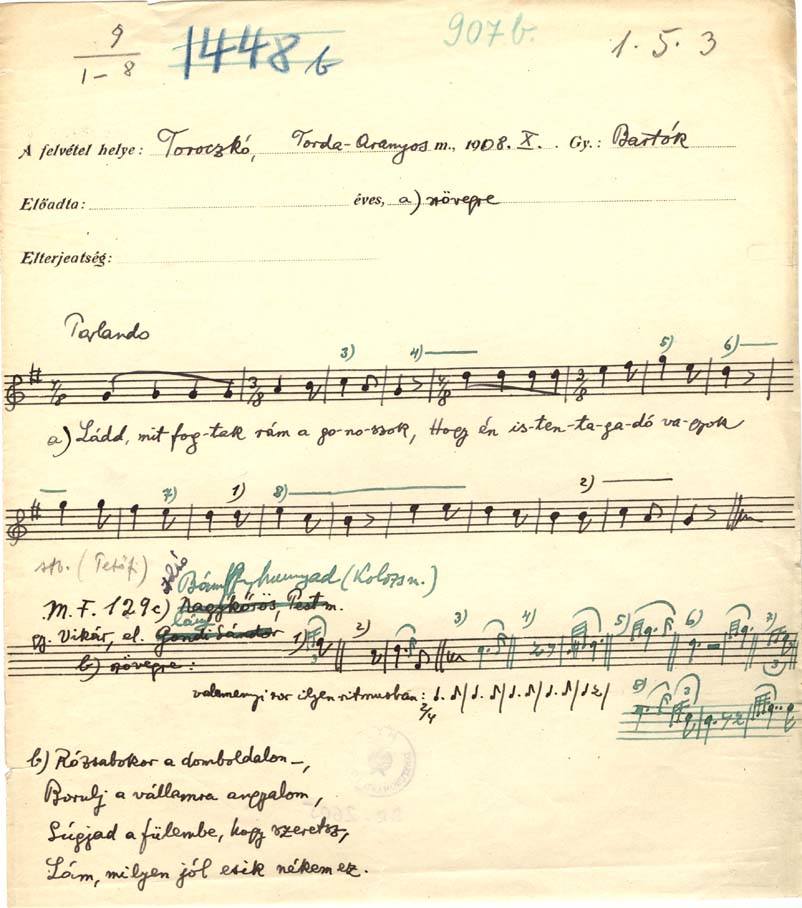 9
1-8
1448 b
907 b.
1. 5. 3
A felvétel helye: Toroczkó, Torda-Aranyos m., 1908. X. Gy.: Bartók
Előadta: éves, a) szövegre
Elterjeatség:
Parlando
3) 4) 5) 6)
a) Ládd, mit fog-tak rám a go-no-szok, Hogy én is-ten-ta-ga-dó va-gyok
7) 1) 8) 2)
stb. (Petőfi)
Bánffyhunyad (Kolozs m.)
M. F. 129c) Nagykőrös, Pest m.
leány
gy. Vikár, el. Gondi Sándor 1) 2) 3) 4) 5) 6) 7)
b) szövegre:
valamennyi sor ilyen ritmusban: 2/4
8)
b) Rózsabokor a domboldalon–,
Borulj a vállamra angyalom,
Súgjad a fülembe, hogy szeretsz,
Lám, milyen jól esik nékem ez.